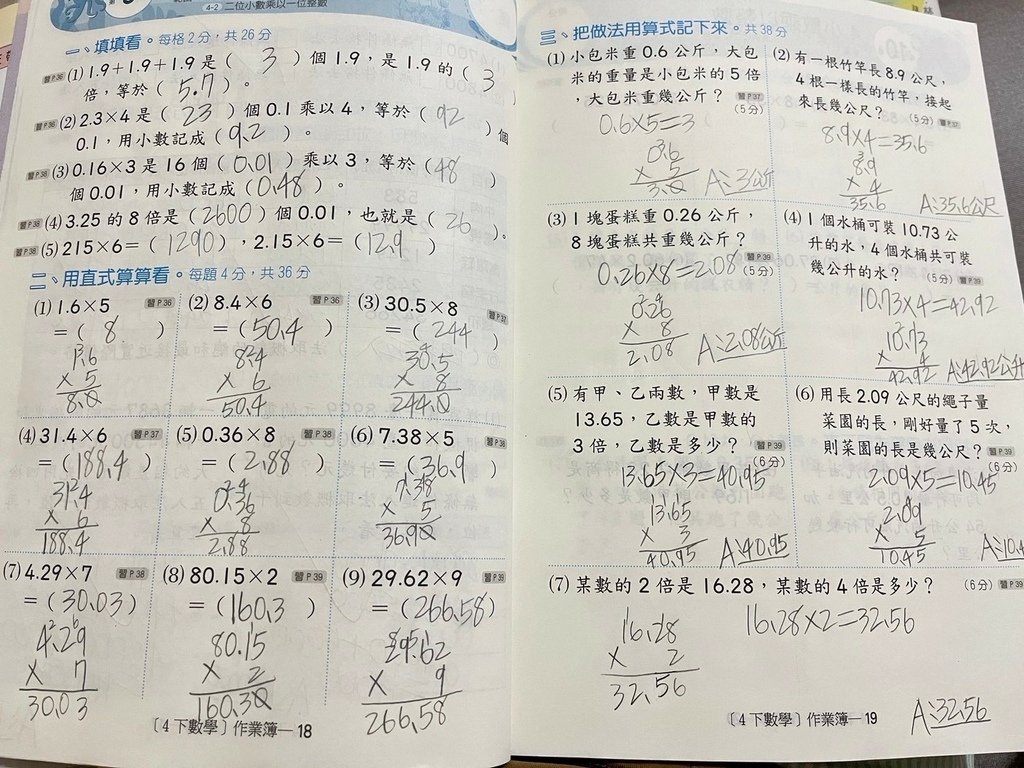 4-2 二位小數乘以一位整數
一、填填看。每格2分，共26分
習P36 (1) 1.9+1.9+1.9是( 3 )個1.9，是1.9的( 3
倍，等於( 5.7 )。
習P36 (2) 2.3×4是( 23 )個0.1乘以4，等於( 92 )個
0.1，用小數記成( 9.2 )。
習P38 (3) 0.16×3是16個( 0.01 )乘以3，等於( 48 )
個0.01，用小數記成( 0.48 )。
習P38 (4) 3.25的8倍是( 2600 )個0.01，也就是( 26 )。
習P38 (5) 215×6=( 1290 )，2.15×6=( 12.9 )
二、用直式算算看。每題4分，共36分
(1) 1.6×5 習P36
=( 8 )
1.6
× 5
8.0
(2) 8.4×6 習P36
=( 50.4 )
8.4
× 6
50.4
(3) 30.5×8 習P37
=( 244 )
30.5
× 8
244.0
(4) 31.4×6 習P37
=( 188.4 )
31.4
× 6
188.4
(5) 0.36×8 習P38
=( 2.88 )
0.36
× 8
2.88
(6) 7.38×5 習P38
=( 36.9 )
7.38
× 5
36.90
(7) 4.29×7 習P38
=( 30.03 )
4.29
× 7
30.03
(8) 80.15×2 習P39
=( 160.3 )
80.15
× 2
160.30
(9) 29.62×9 習P39
=( 266.58 )
29.62
× 9
266.58
〔4下數學〕作業簿—18
三、把做法用算式記下來。共38分
(1) 小包米重0.6公斤，大包
米的重量是小包米的5倍
，大包米重幾公斤？ 習P37
(5分)
0.6×5=3
0.6
× 5
3.0
A：3公斤
(2) 有一根竹竿長8.9公尺，
4根一樣長的竹竿，接起
來長幾公尺？ (5分) 習P37
8.9×4=35.6
8.9
× 4
35.6
A：35.6公尺
(3) 1塊蛋糕重0.26公斤，
8塊蛋糕共重幾公斤？
習P39
(5分)
0.26×8=2.08
0.26
× 8
2.08
A：2.08公斤
(4) 1個水桶可裝10.73公
升的水，4個水桶共可裝
幾公升的水？ (5分) 習P39
10.73×4=42.92
10.73
× 4
42.92
A：42.92公升
(5) 有甲、乙兩數，甲數是
13.65，乙數是甲數的
3倍，乙數是多少？ 習P39
(6分)
13.65×3=40.95
13.65
× 3
40.95
A：40.95
(6) 用長2.09公尺的繩子量
菜園的長，剛好量了5次，
則菜園的長是幾公尺？ 習P39
(6分)
2.09×5=10.45
2.09
× 5
10.45
A：10.4
(7) 某數的2倍是16.28，某數的4倍是多少？ (6分) 習P39
16.28×2=32.56
16.28
× 2
32.56
A：32.56
〔4下數學〕作業簿—19